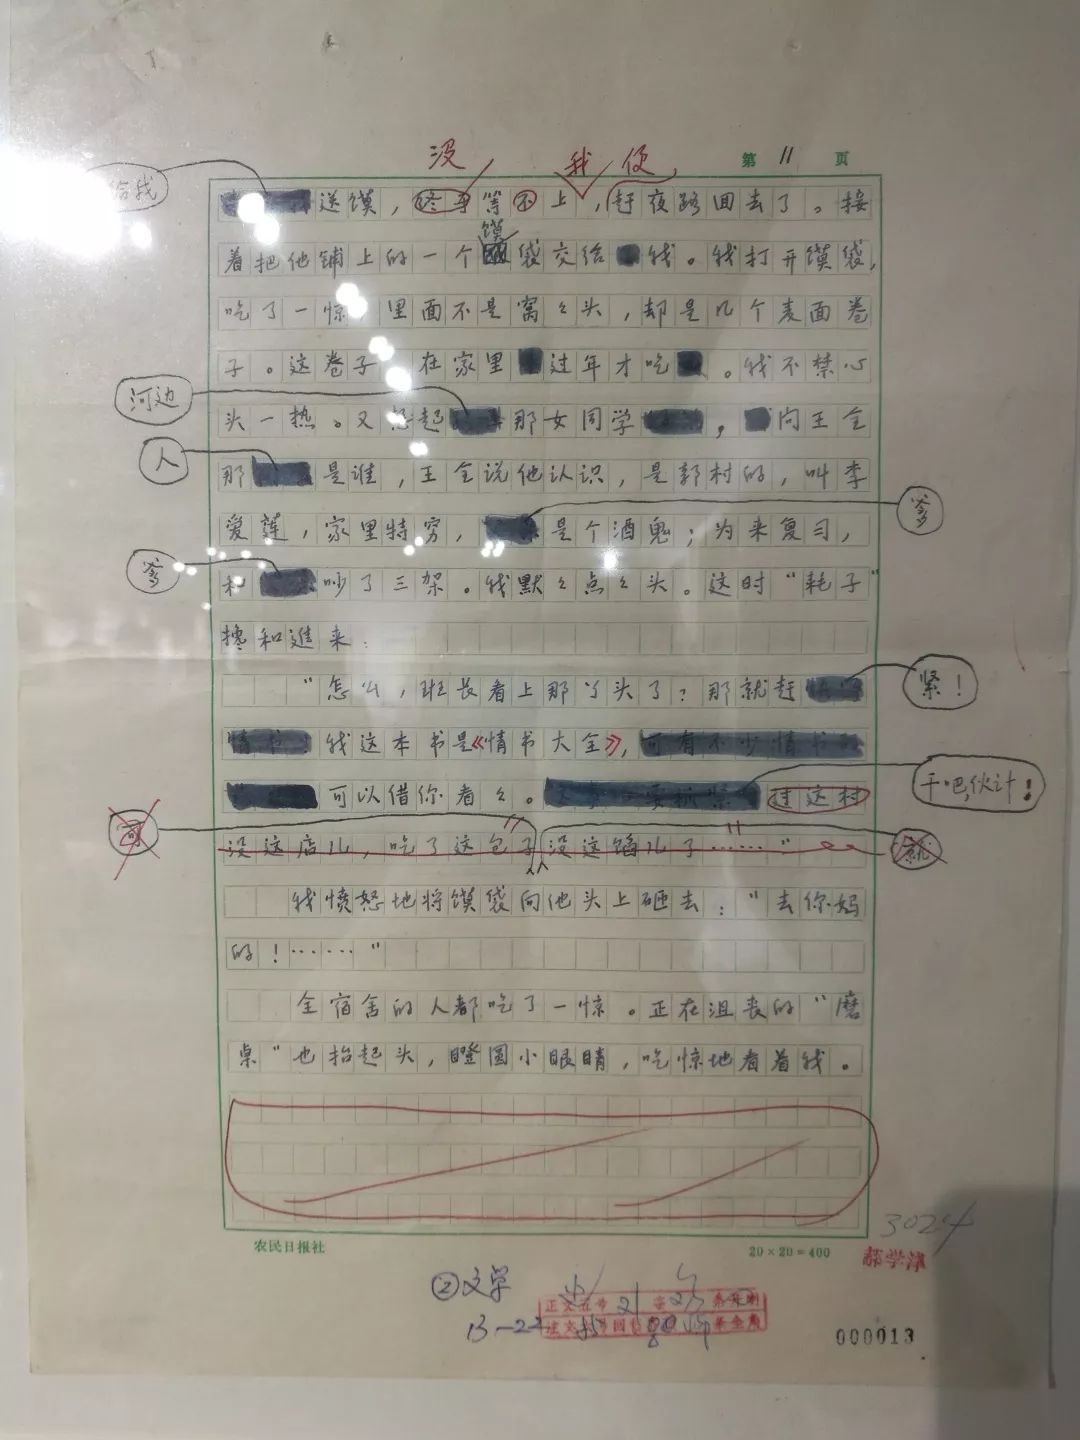 没 我便
第 11 页
给我
送馍，终于等不上，赶夜路回去了。接
着把他铺上的一个馍袋交给我。我打开馍袋，
吃了一惊，里面不是窝々头，却是几个麦面卷
子。这卷子，在家里过年才吃。我不禁心
河边
头一热。又想起那女同学，向王全
人
那是谁，王全说他认识，是郭村的，叫李
爹
爱莲，家里特穷，是个酒鬼；为来复习，
爹
和吵了三架。我默々点々头。这时“耗子”
搀和进来：
“怎么，班长看上那丫头了？那就赶
紧！
情书！我这本书是《情书大全》，可有不少情书
干吧，伙计！
可以借你看々。过这村
可
没这店儿，吃了这包子没这馅儿了……”
就
我愤怒地将馍袋向他头上砸去：“去你妈
的！……”
全宿舍的人都吃了一惊。正在沮丧的“磨
桌”也抬起头，瞪圆小眼睛，吃惊地看着我。
农民日报社
20×20=400
3024
②文学
13-22
000013